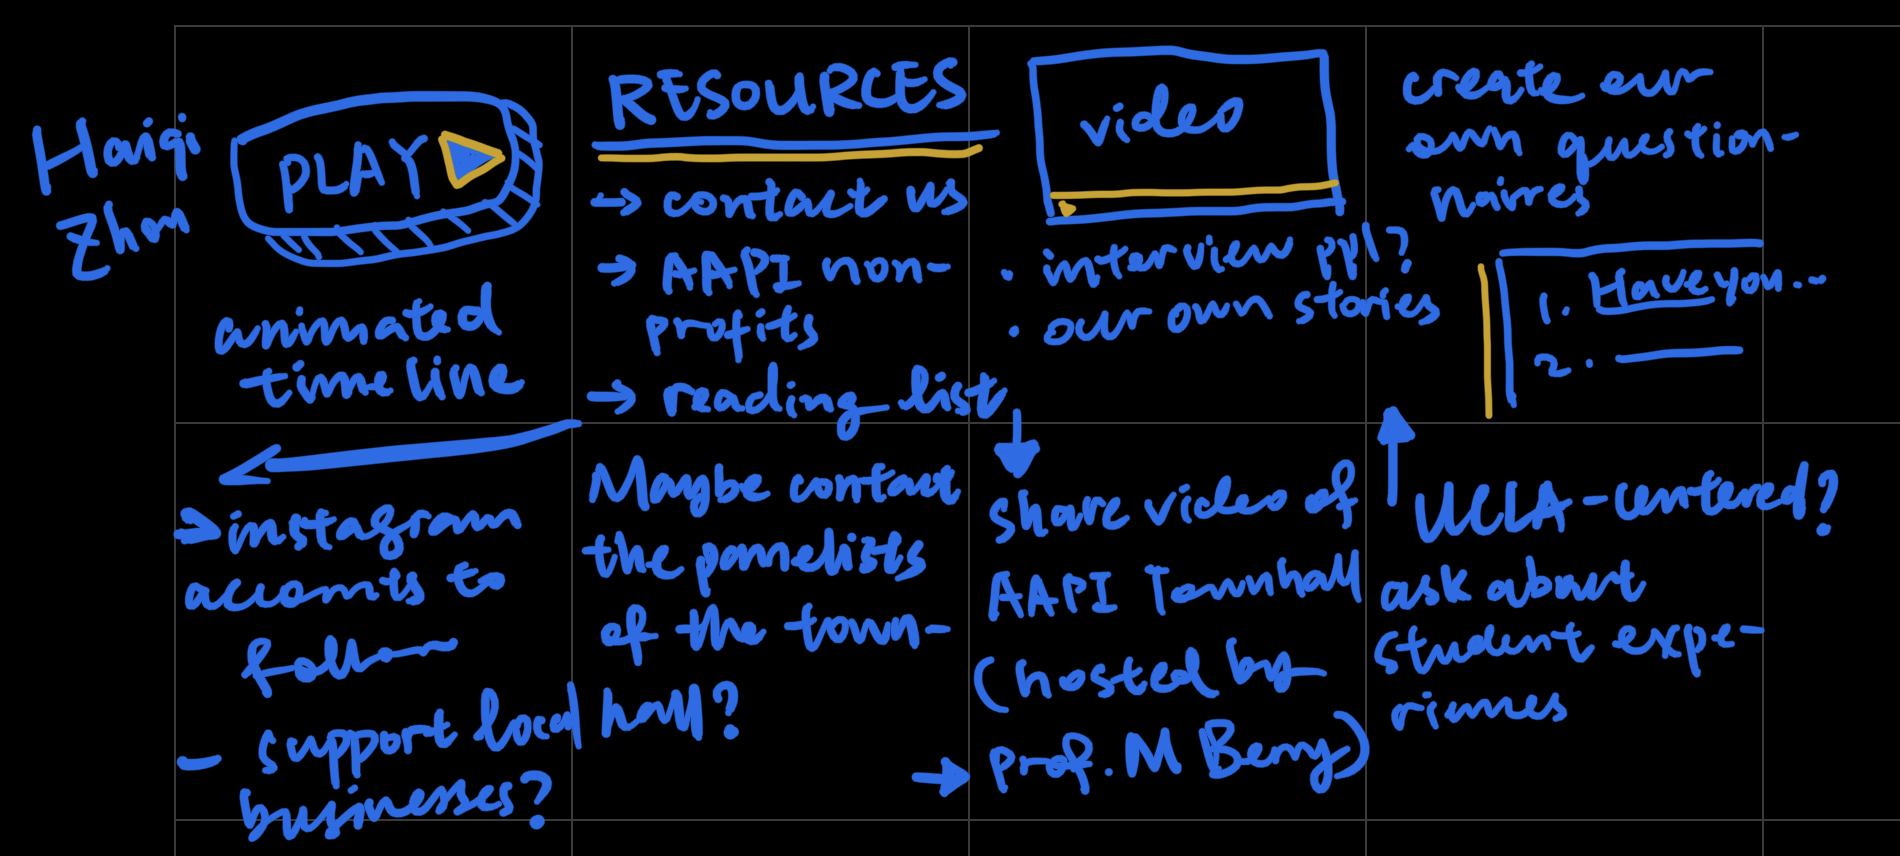 Haiqi
Zhou
PLAY
animated
timeline
RESOURCES
→ contact us
→ AAPI non-
profits
→ reading list
video
• interview ppl?
• our own stories
create our
own question-
naires
1. Have you...
2.
→ instagram
accounts to
follow
- support local
businesses?
Maybe contact
the panelists
of the town-
hall?
share video of
AAPI Townhall
(hosted by
→ prof. M Berry)
UCLA-centered?
ask about
student expe-
riences